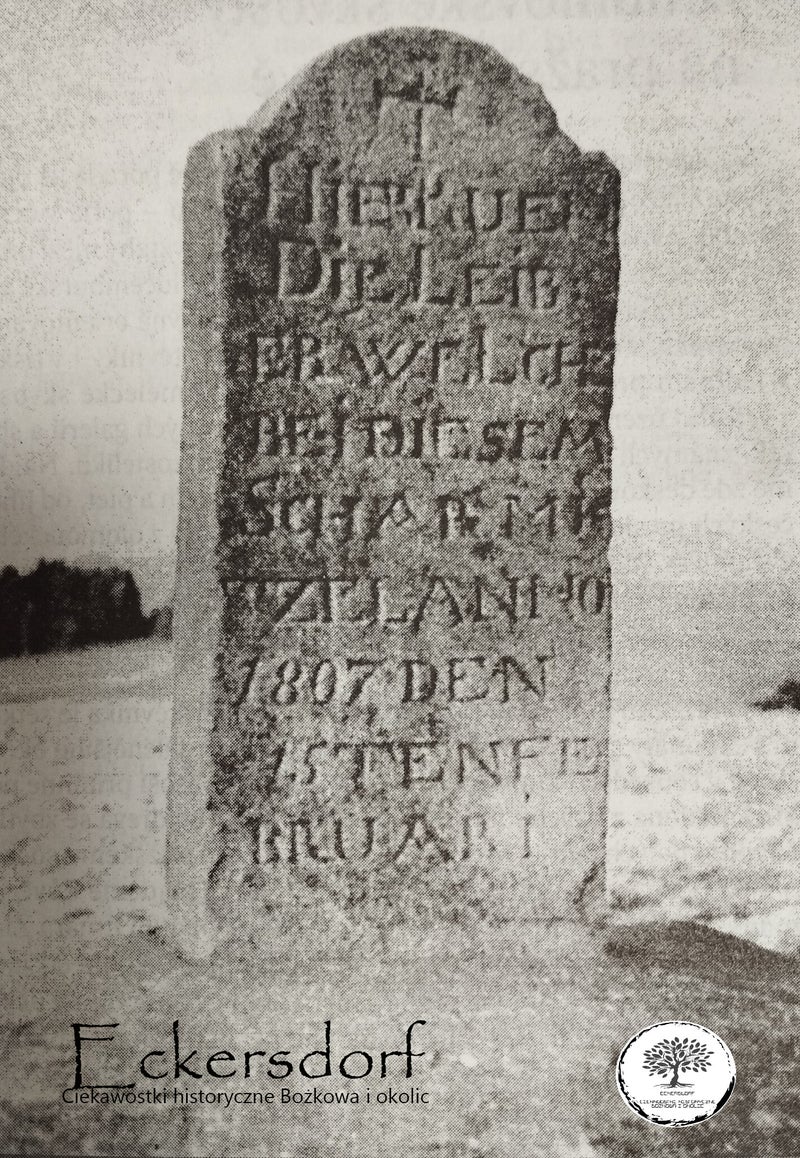 HIER RUEN
DIE LEIB
ER WELCHE
BEI DIESEM
SCHARMÜ
TZEL ANNO
1807 DEN
15TEN FE
BRUARI
Eckersdorf
Ciekawostki historyczne Bożkowa i okolic
ECKERSDORF
CIEKAWOSTKI HISTORYCZNE
BOŻKOWA I OKOLIC